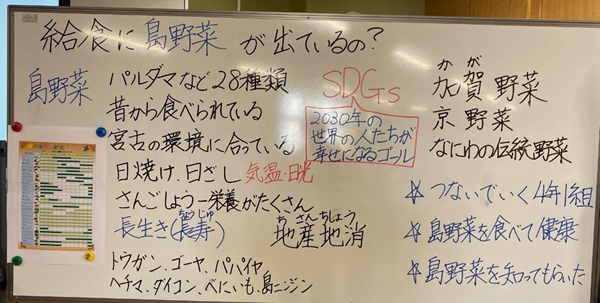 給食に島野菜が出ているの？
島野菜
パルダマなど28種類
昔から食べられている
宮古の環境に合っている
日焼け、日ざし 気温・日光
さんごしょう―栄養がたくさん
長生き(長寿)
ちょうじゅ
トウガン、ゴーヤ、パパイヤ
ヘチマ、ダイコン、べにいも、島ニンジン
SDGs
2030年の
世界の人たちが
幸せになるゴール
ちさんちしょう
地産地消
かが
加賀野菜
京野菜
なにわの伝統野菜
☆つないでいく4年1組
☆島野菜を食べて健康
☆島野菜を知ってもらいた